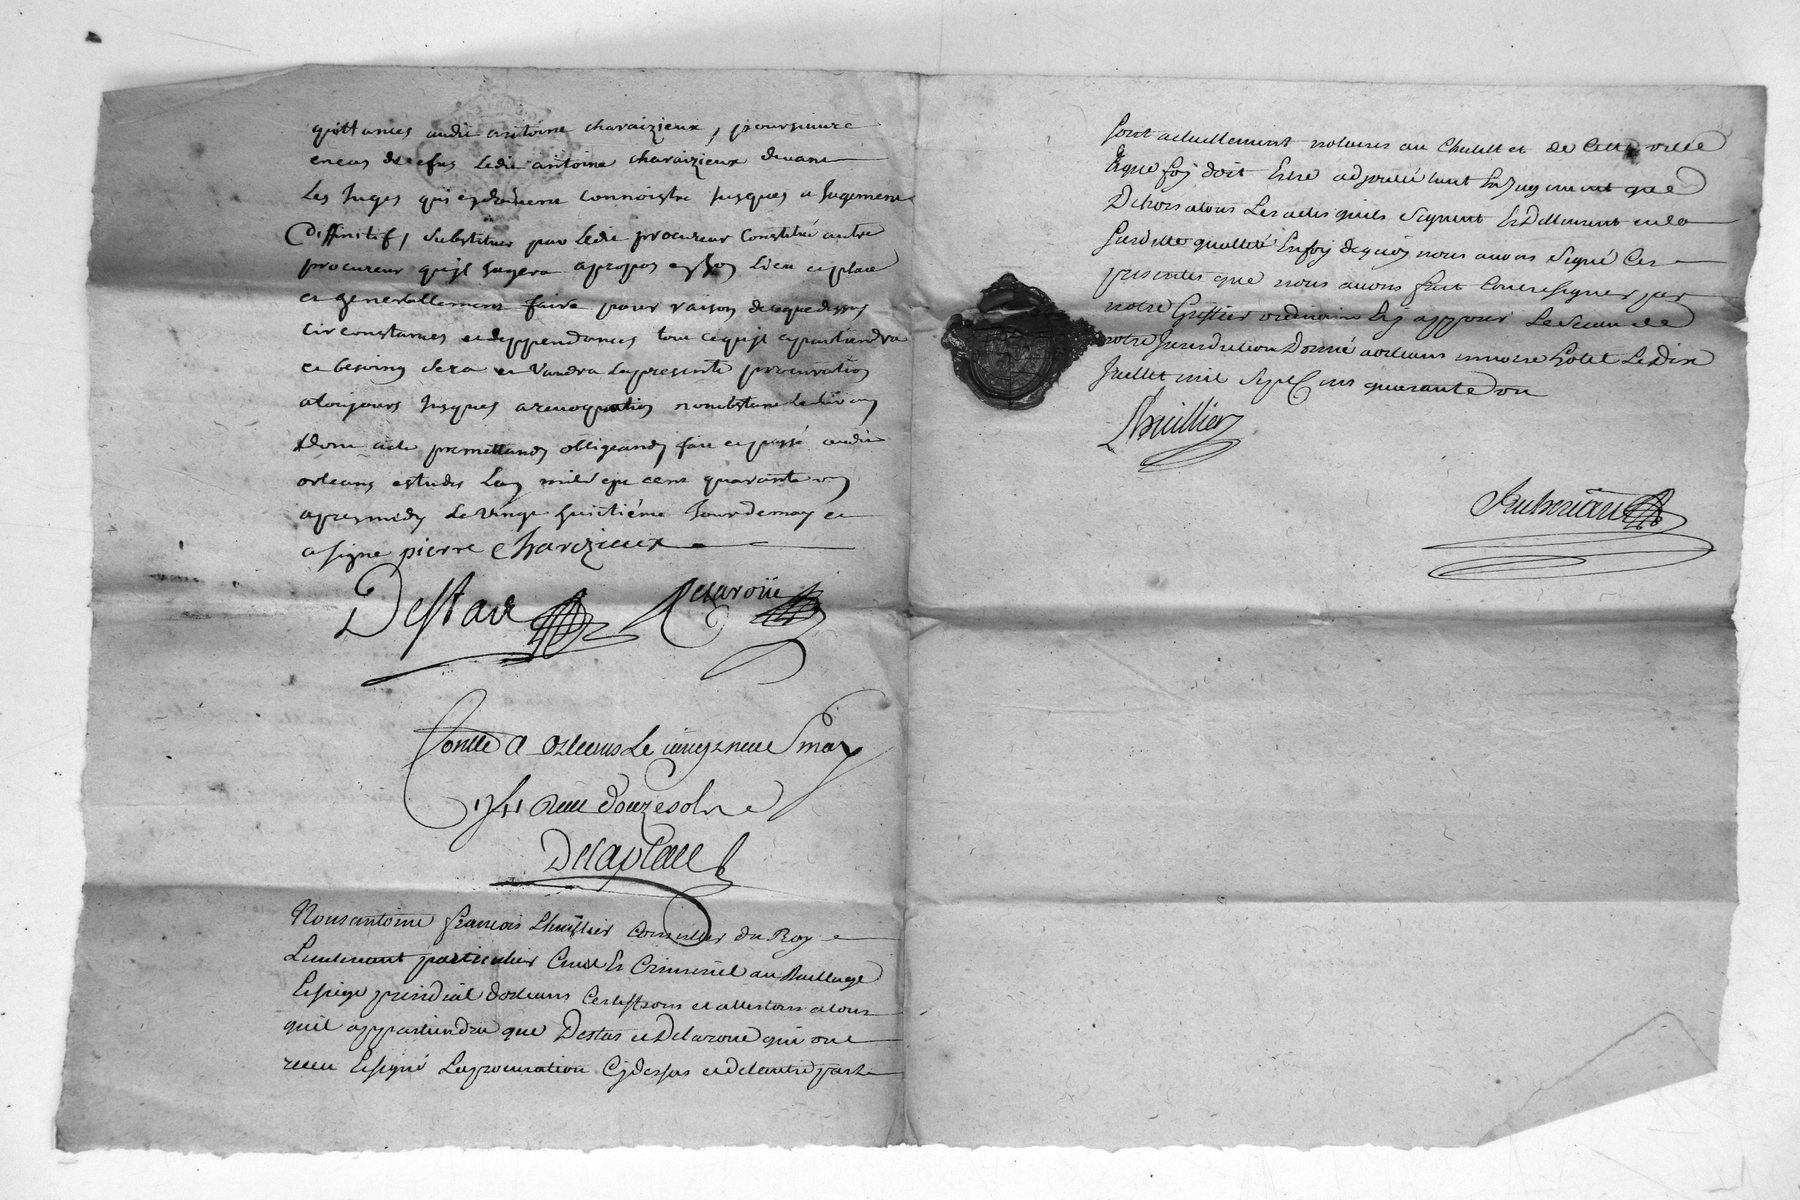 quittances audit antoine charaizieux, poursuivre
encas de refus ledit antoine charaizieux devant
les Juges qui en devront connoistre Jusques a Jugement
diffinitif, substituer par ledit procureur Constitué autre
procureur quil Jugera apropos en son lieu et place
et generallement faire pour raison de ceque dessus
circonstances et deppendances tout cequil apartiendra
et besoing sera et vaudra lapresente procuration
atoujours Jusques arevoquation nonobstant
Dont acte promettand obligeand fait et passé audit
orleans estudes Lan mil sept cent quarante un
apresmidy Le vingt huictiéme Jour de may et
a signé pierre Charezieux
Destas Delaroüe
Conllé A orleans Le vingt neuf may
1741 Reçu douze sols
Delaplace
Nous antoine françois Lhuillier Conseiller du Roy
Lieutenant particulier Civil Et Criminel au Bailliage
Et siege presidial dorleans Certiffions et attestons atous
quil appartiendra que Destas et Delaroue qui ont
receu Et signé Laprocuration Cydessus et delautre part
sont actuellement notaires au Chatelet de Cette ville
Et que foy doit Estre adjoutée tant En Jugement que
Dehors atous Les actes quils signent Et Delivrent en la
susditte qualité En foy dequoy nous avons signé Ces
presentes que nous avons fait Contresigner par
notre Greffier ordinaire Et apposer Le Sceau de
notre Jurisdiction Donné aorleans en notre hotel Le Dix
Juillet mil Sept Cens quarante un
Lhuillier